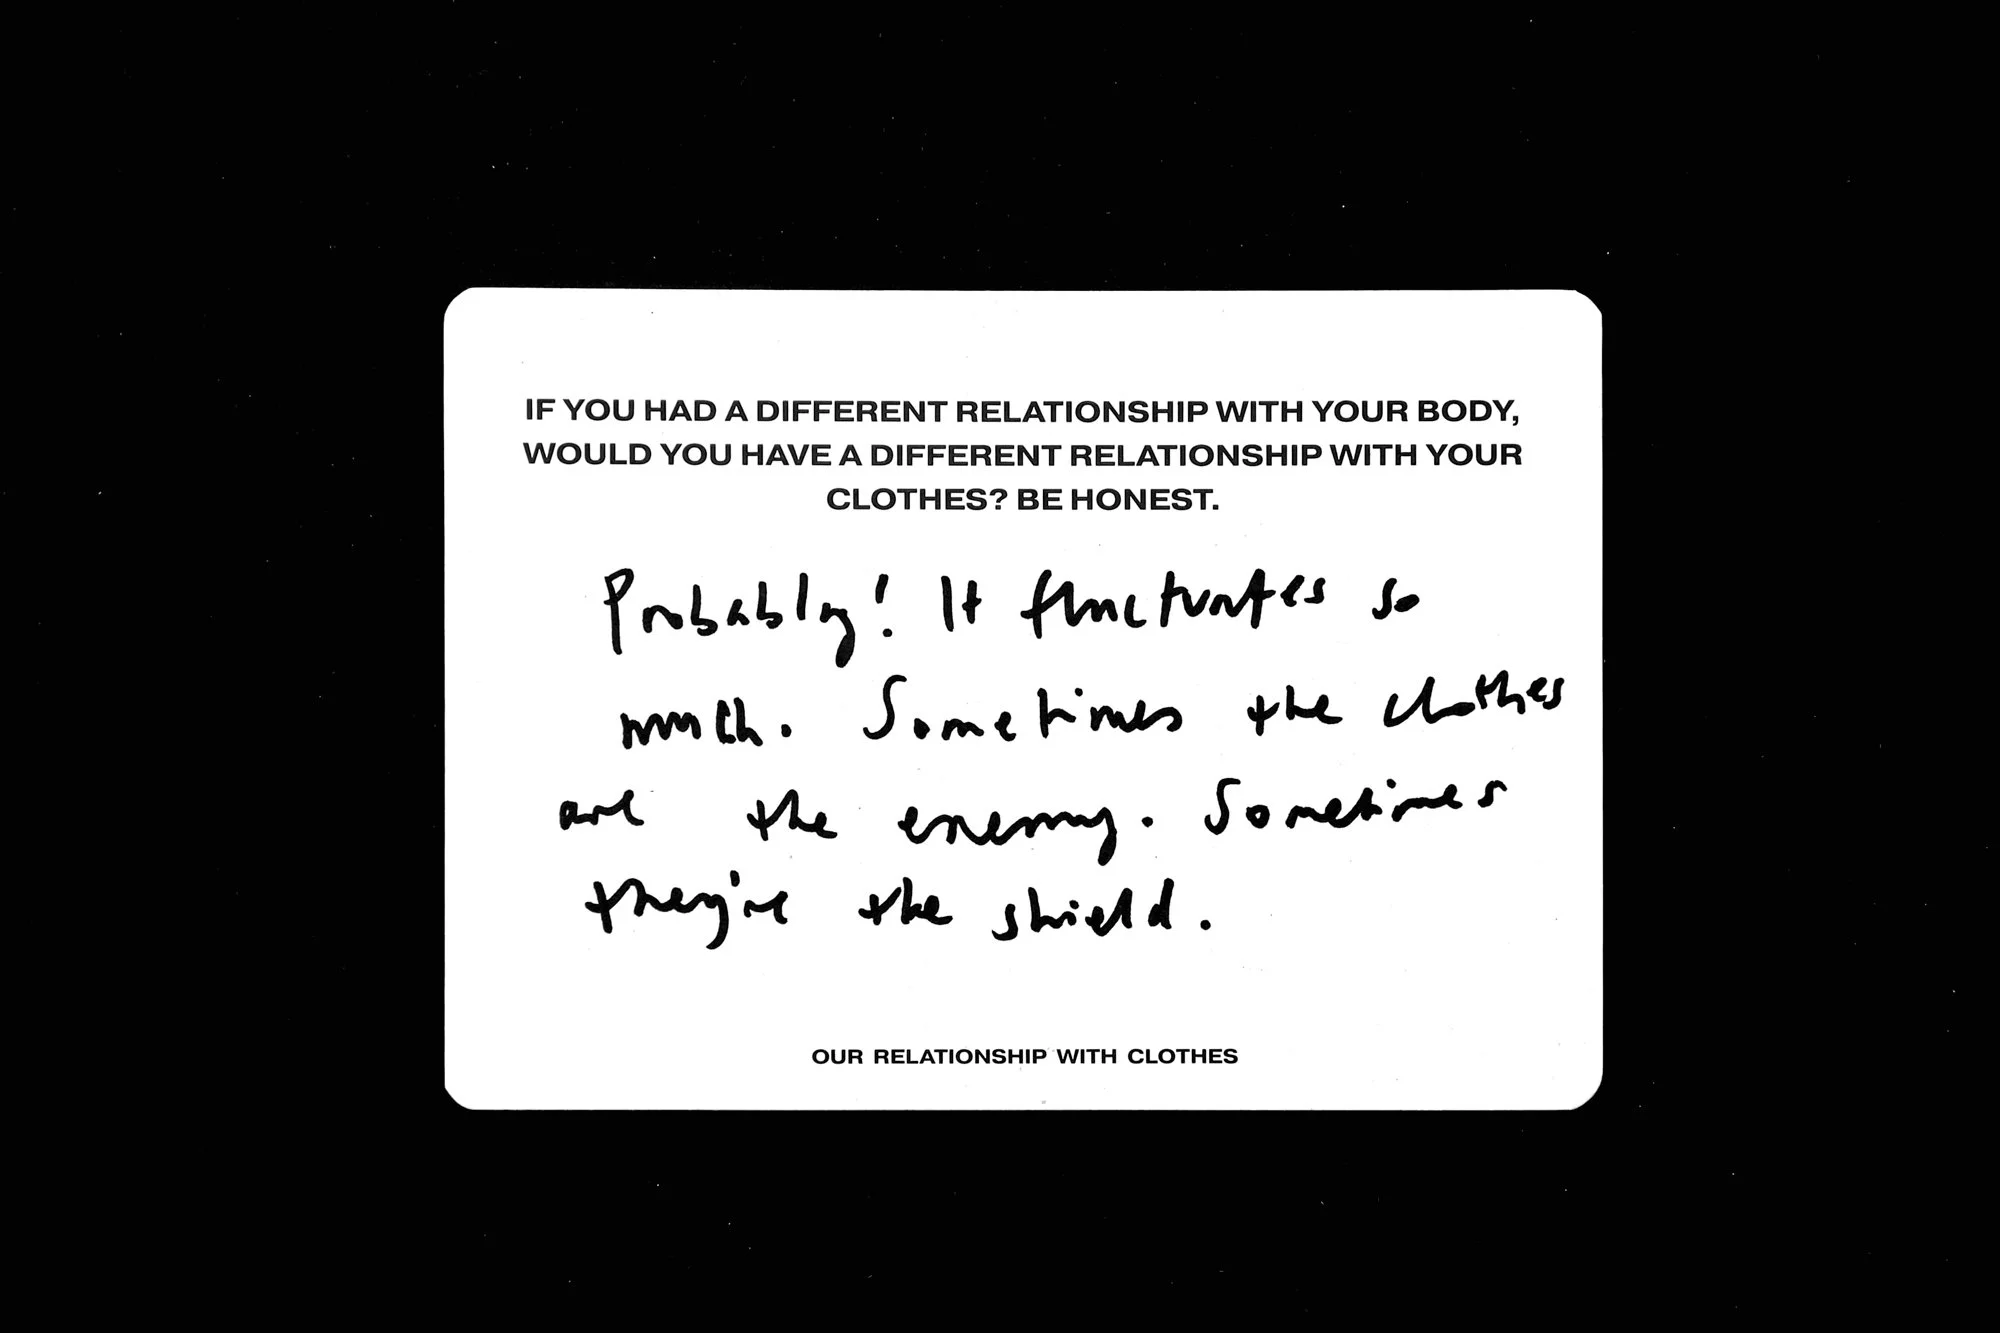 IF YOU HAD A DIFFERENT RELATIONSHIP WITH YOUR BODY,
WOULD YOU HAVE A DIFFERENT RELATIONSHIP WITH YOUR
CLOTHES? BE HONEST.
Probably! It flunctuates so
much. Sometimes the clothes
are the enemy. Sometimes
they're the shield.
OUR RELATIONSHIP WITH CLOTHES